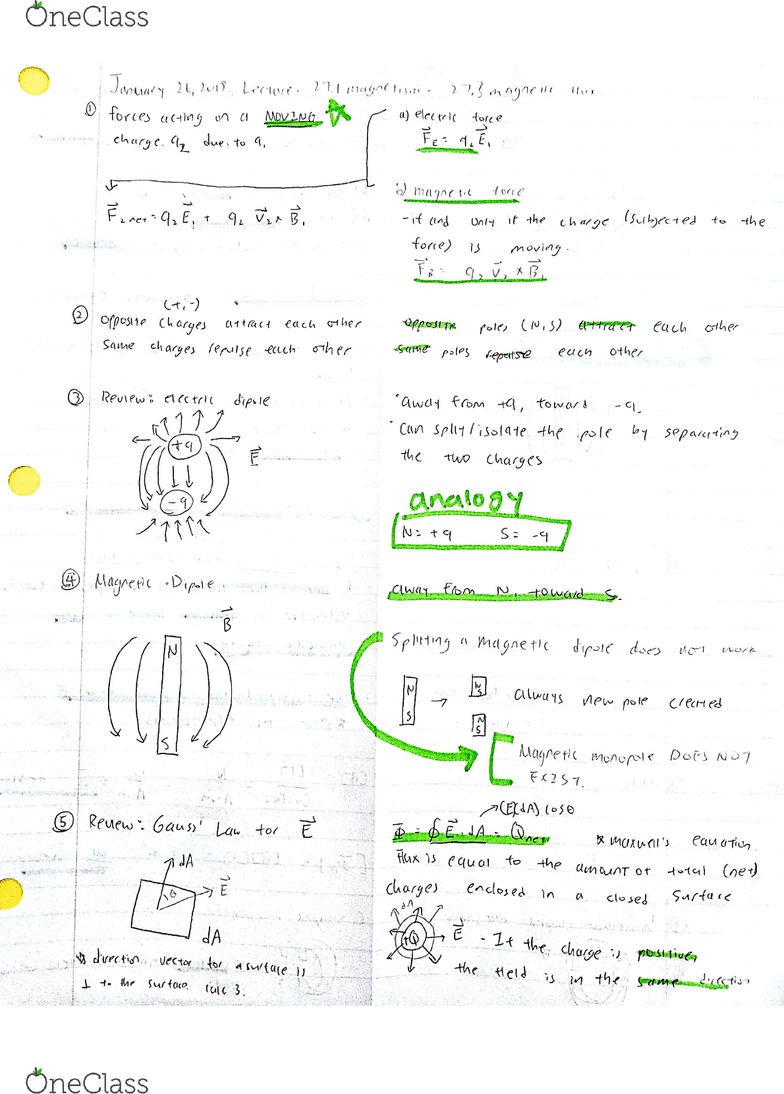 OneClass
January 26, 2018. Lecture - 27.1 magnetism - 27.3 magnetic flux
① forces acting on a MOVING
charge. q₂ due to q₁
F⃗₂ net = q₂ E⃗₁ + q₂ V⃗₂ × B⃗₁
a) electric force
F⃗E = q₂ E⃗₁
b) magnetic force
- if and only if the charge (subjected to the
force) is moving.
F⃗B = q₂ V⃗₂ × B⃗₁
(+,-)
② opposite charges attract each other
Same charges repulse each other
opposite poles (N,S) attract each other
same poles repulse each other
③ Review: electric dipole
+q
E⃗
-q
• away from +q, toward -q.
• can split/isolate the pole by separating
the two charges
analogy
N = +q S = -q
④ Magnetic Dipole
away from N, toward S.
B⃗
N
S
Splitting a magnetic dipole does not work
N
S
→
N
S
N
S
always new pole created
Magnetic monopole DOES NOT
EXIST.
⑤ Review: Gauss' Law for E⃗
→ (E)(dA) cosθ
Φ = ∮ E⃗ · dA = Qnet * maxwell's equation
flux is equal to the amount of total (net)
charges enclosed in a closed surface
dA
θ
E⃗
dA
direction vector for a surface is
⊥ to the surface calc 3.
dA
+Q
E⃗ - If the charge is positive,
the field is in the same direction
OneClass